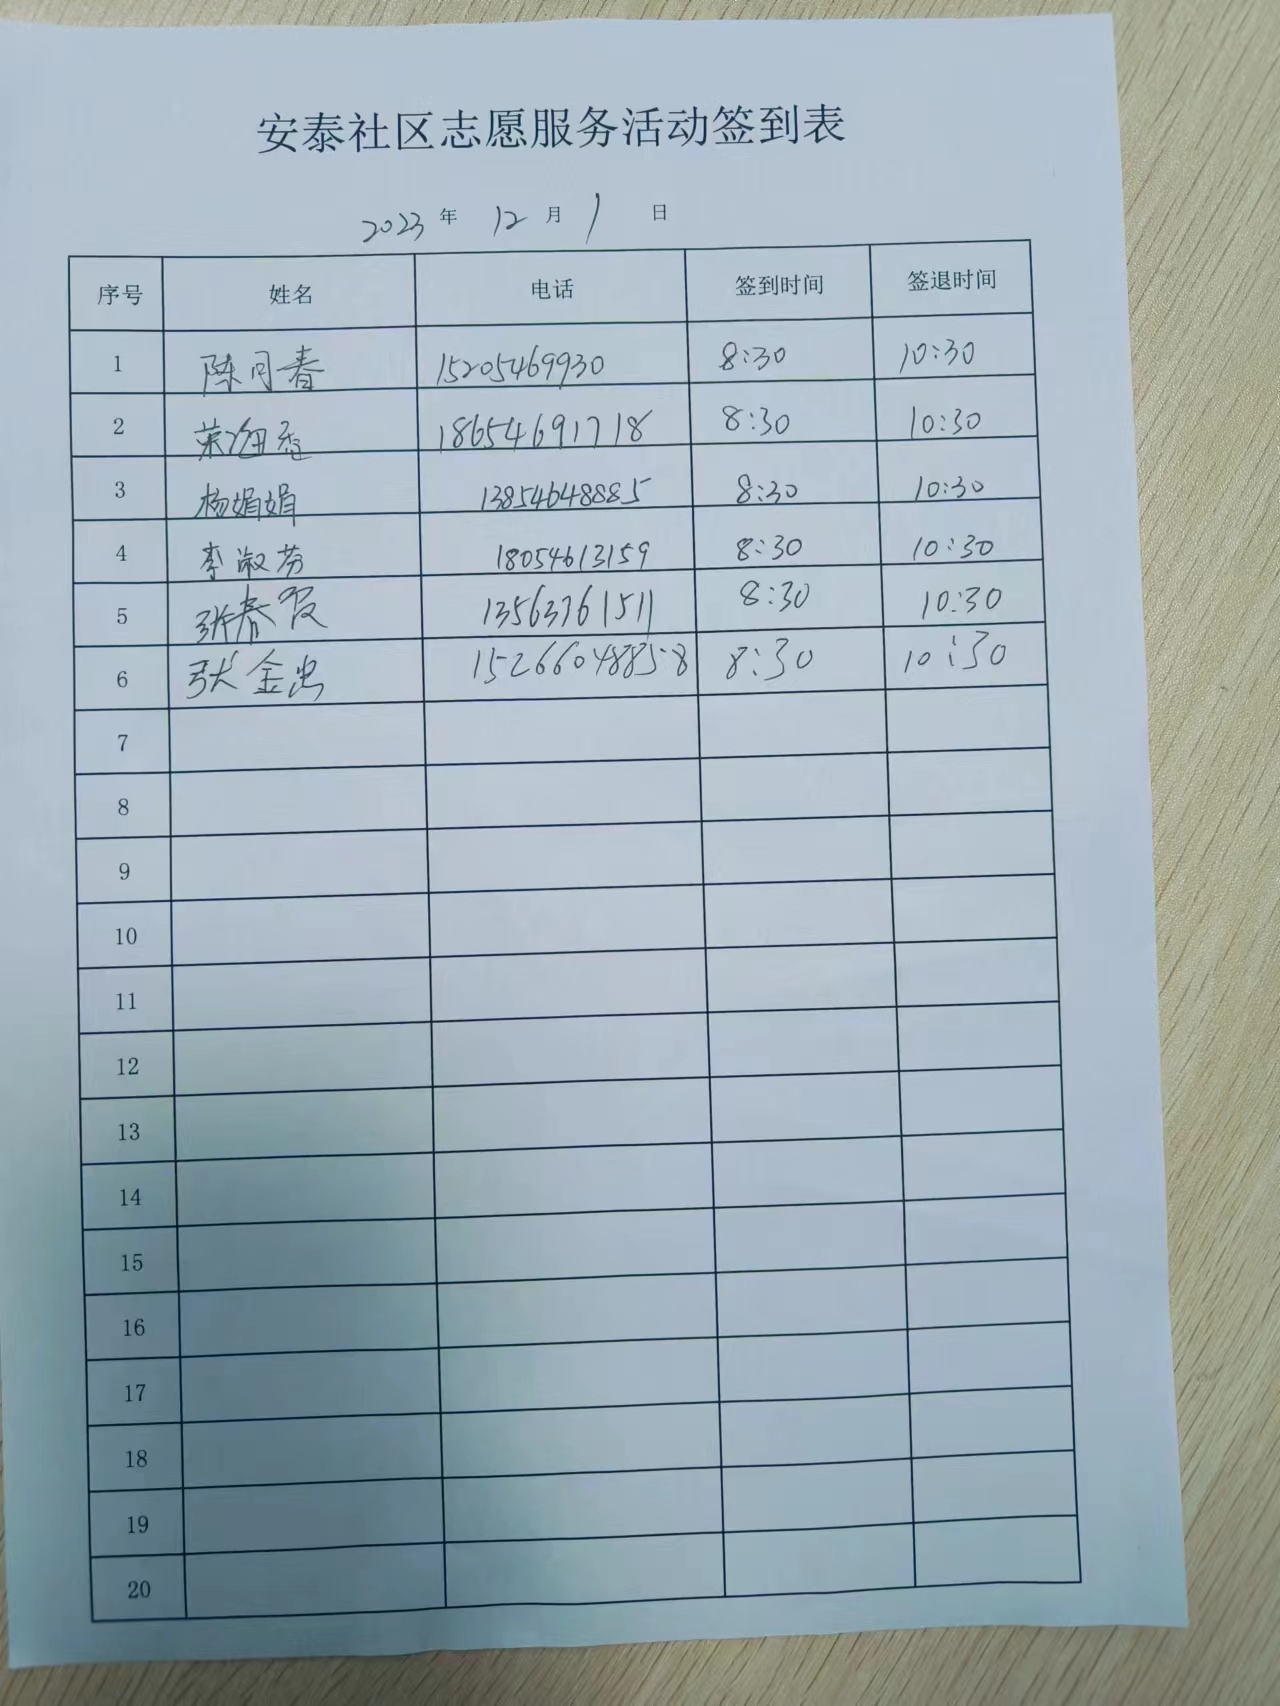 安泰社区志愿服务活动签到表
2023 年 12 月 1 日
序号 姓名 电话 签到时间 签退时间
1 陈同春 15205469930 8:30 10:30
2 荣海香 18654691718 8:30 10:30
3 杨娟娟 13854648885 8:30 10:30
4 李淑芬 18054613159 8:30 10:30
5 张春霞 13563761511 8:30 10:30
6 张金忠 15266048858 8:30 10:30
7
8
9
10
11
12
13
14
15
16
17
18
19
20